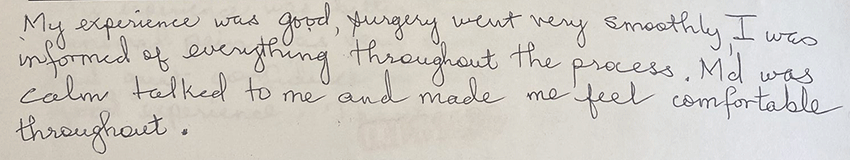 My experience was good, surgery went very smoothly, I was
informed of everything throughout the process. Md was
calm talked to me and made me feel comfortable
throughout.